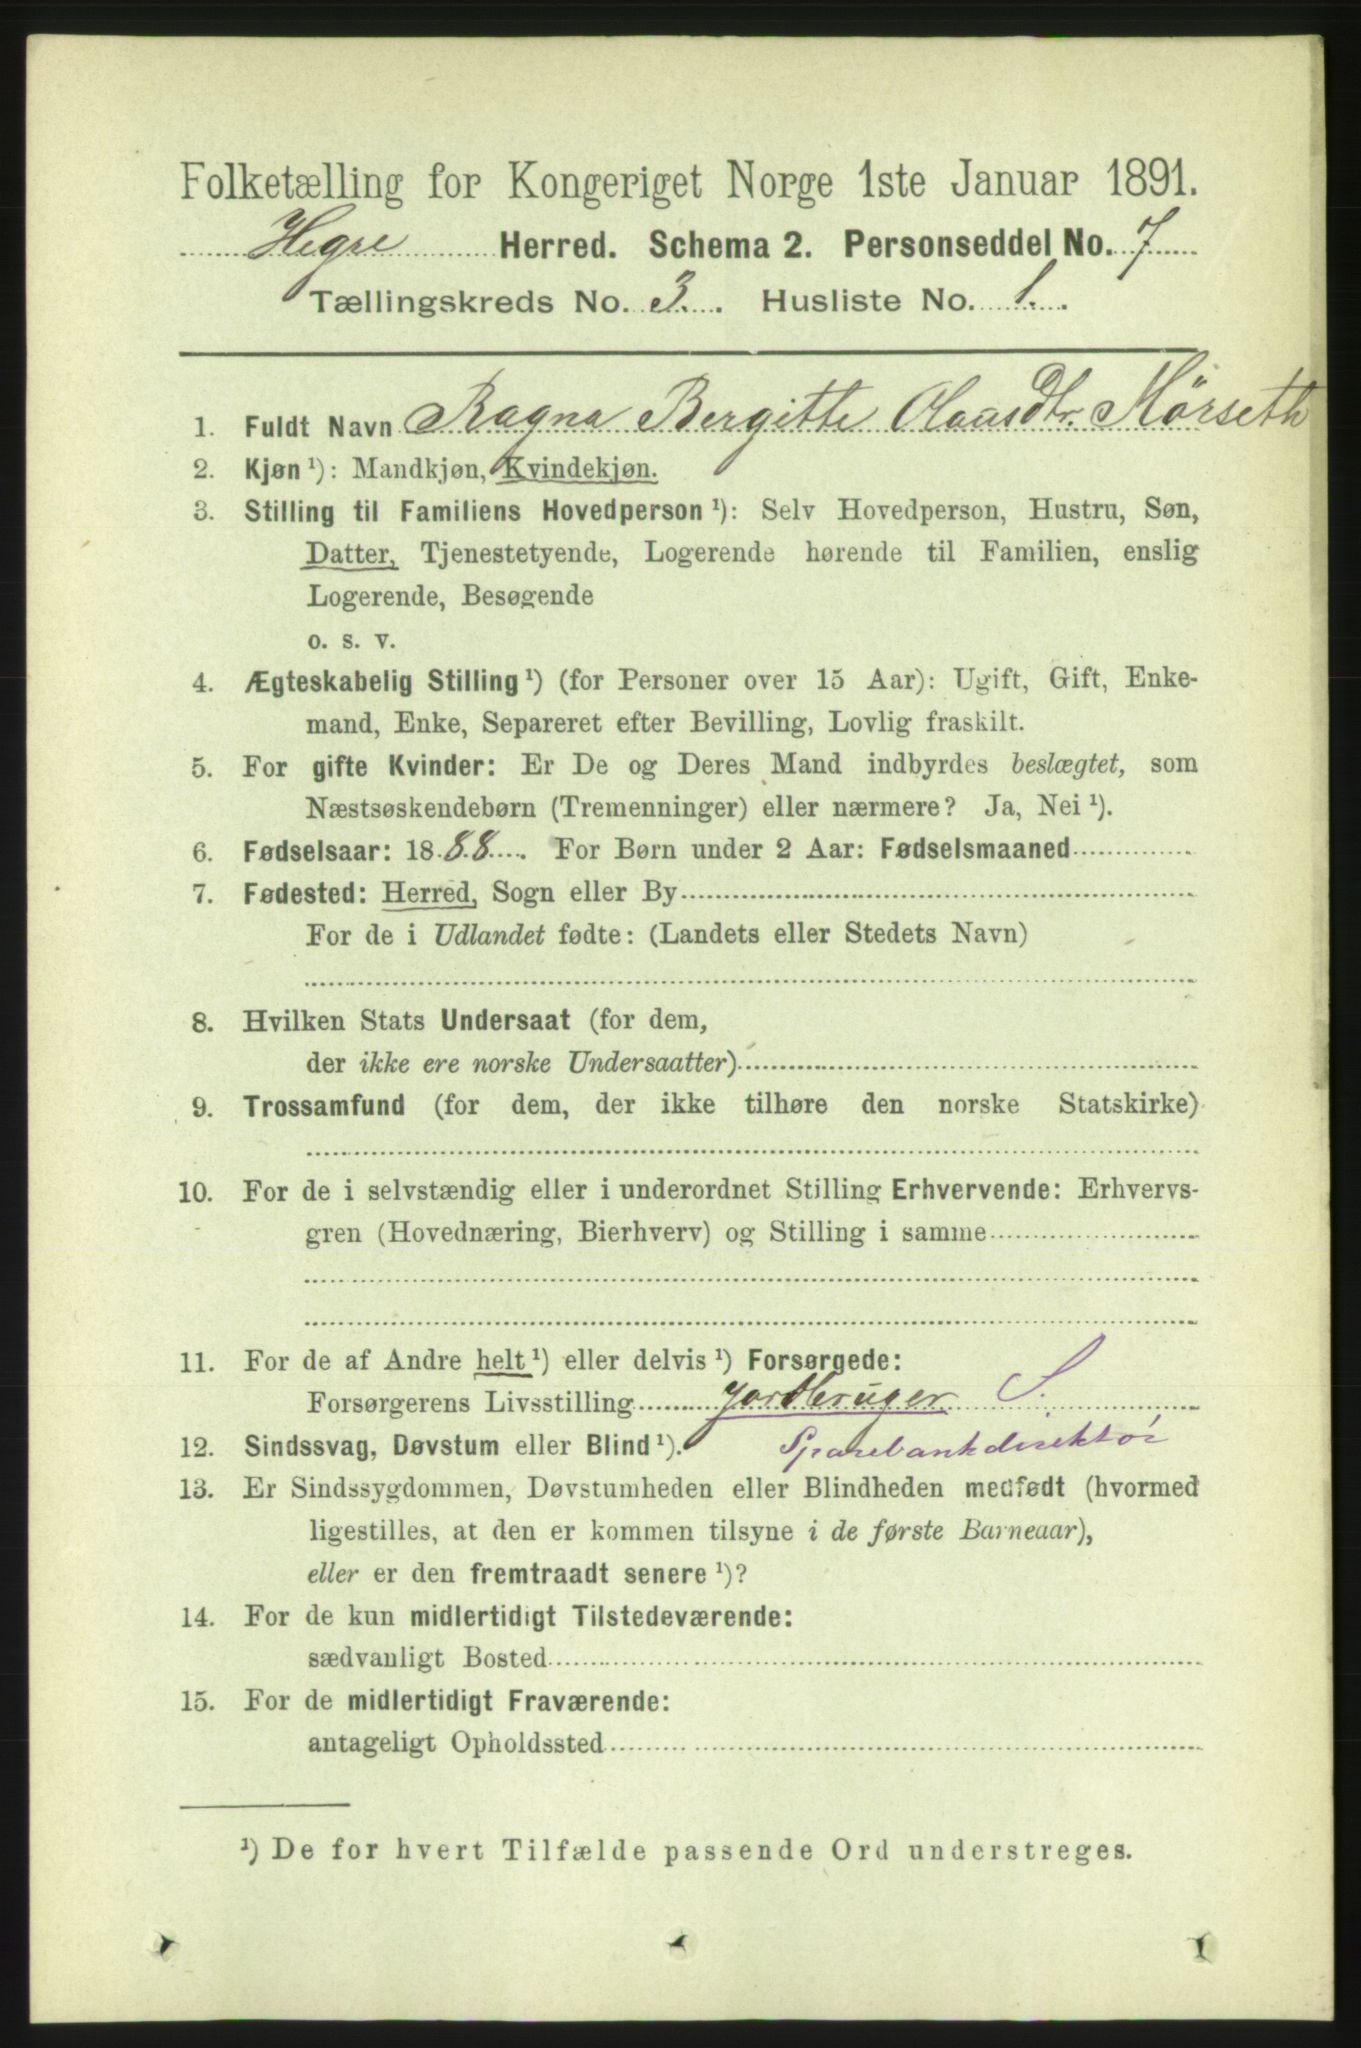 Folketælling for Kongeriget Norge 1ste Januar 1891.
Hegre Herred. Schema 2. Personseddel No. 7
Tællingskreds No. 3. Husliste No. 1.
1. Fuldt Navn Ragna Bergitte Olausdtr. Mörseth
2. Kjøn ¹): Mandkjøn, Kvindekjøn.
3. Stilling til Familiens Hovedperson ¹): Selv Hovedperson, Hustru, Søn,
Datter, Tjenestetyende, Logerende hørende til Familien, enslig
Logerende, Besøgende
o. s. v.
4. Ægteskabelig Stilling ¹) (for Personer over 15 Aar): Ugift, Gift, Enke-
mand, Enke, Separeret efter Bevilling, Lovlig fraskilt.
5. For gifte Kvinder: Er De og Deres Mand indbyrdes beslægtet, som
Næstsøskendebørn (Tremenninger) eller nærmere? Ja, Nei ¹).
6. Fødselsaar: 1888. For Børn under 2 Aar: Fødselsmaaned
7. Fødested: Herred, Sogn eller By
For de i Udlandet fødte: (Landets eller Stedets Navn)
8. Hvilken Stats Undersaat (for dem,
der ikke ere norske Undersaatter)
9. Trossamfund (for dem, der ikke tilhøre den norske Statskirke)
10. For de i selvstændig eller i underordnet Stilling Erhvervende: Erhvervs-
gren (Hovednæring, Bierhverv) og Stilling i samme
11. For de af Andre helt ¹) eller delvis ¹) Forsørgede:
Forsørgerens Livsstilling Jordbruger S.
12. Sindssvag, Døvstum eller Blind ¹). Sparebankdirektör
13. Er Sindssygdommen, Døvstumheden eller Blindheden medfødt (hvormed
ligestilles, at den er kommen tilsyne i de første Barneaar),
eller er den fremtraadt senere ¹)?
14. For de kun midlertidigt Tilstedeværende:
sædvanligt Bosted
15. For de midlertidigt Fraværende:
antageligt Opholdssted
¹) De for hvert Tilfælde passende Ord understreges.